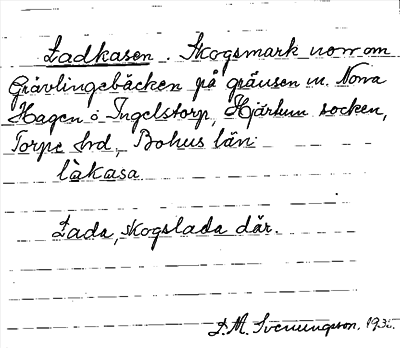 Ladkasen. Skogsmark norr om
Grävlingebäcken på gränsen m. Norra
Hagen o Ingelstorp, Hjärtum socken,
Torpe hrd, Bohus län.
làkasa
Lada, skogslada där.
D. M. Svenungsson.